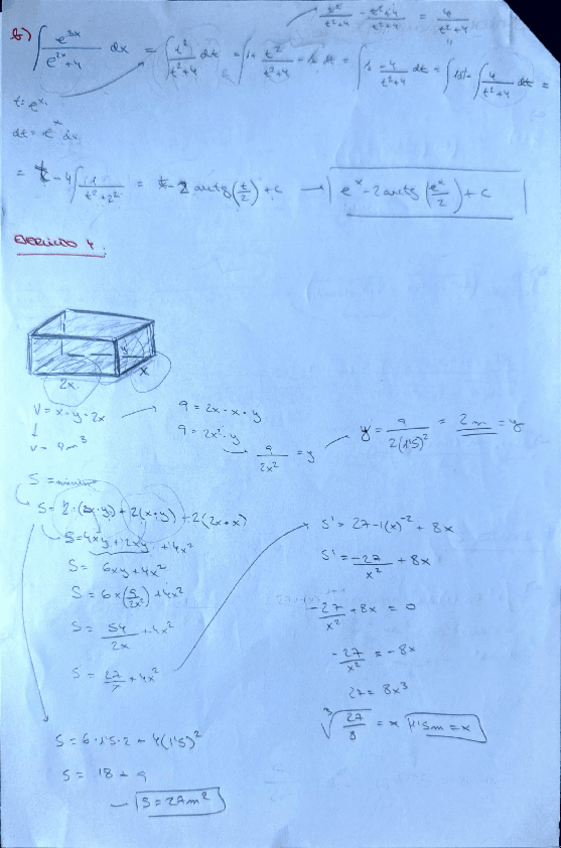 t²/(t²+4) - (t²+4)/(t²+4) = 4/(t²+4)
b) ∫ e^(3x)/(e^(2x)+4) dx = ∫ t²/(t²+4) dt = ∫ 1 + t²/(t²+4) - 1 dt = ∫ 1 - 4/(t²+4) dt = ∫ 1dt - ∫ 4/(t²+4) dt =
t = e^x
dt = e^x dx
= t - 4∫ 1/(t²+2²) = t - 2 arctg(t/2) + c → e^x - 2 arctg(e^x/2) + c
EJERCICIO 4.
y
x
2x
V = x·y·2x
9 = 2x·x·y
9 = 2x²·y
9/(2x²) = y
y = 9/(2(1'5)²) = 2m = y
V = 9m³
S =
S = 2·(2x·y) + 2(x·y) + 2(2x·x)
S = 4xy + 2xy + 4x²
S = 6xy + 4x²
S = 6x(9/(2x²)) + 4x²
S = 54/(2x) + 4x²
S = 27/x + 4x²
S' = 27·-1(x)^-2 + 8x
S' = -27/x² + 8x
-27/x² + 8x = 0
-27/x² = -8x
27 = 8x³
∛(27/8) = x 1'5m = x
S = 6·1'5·2 + 4(1'5)²
S = 18 + 9
S = 27m²